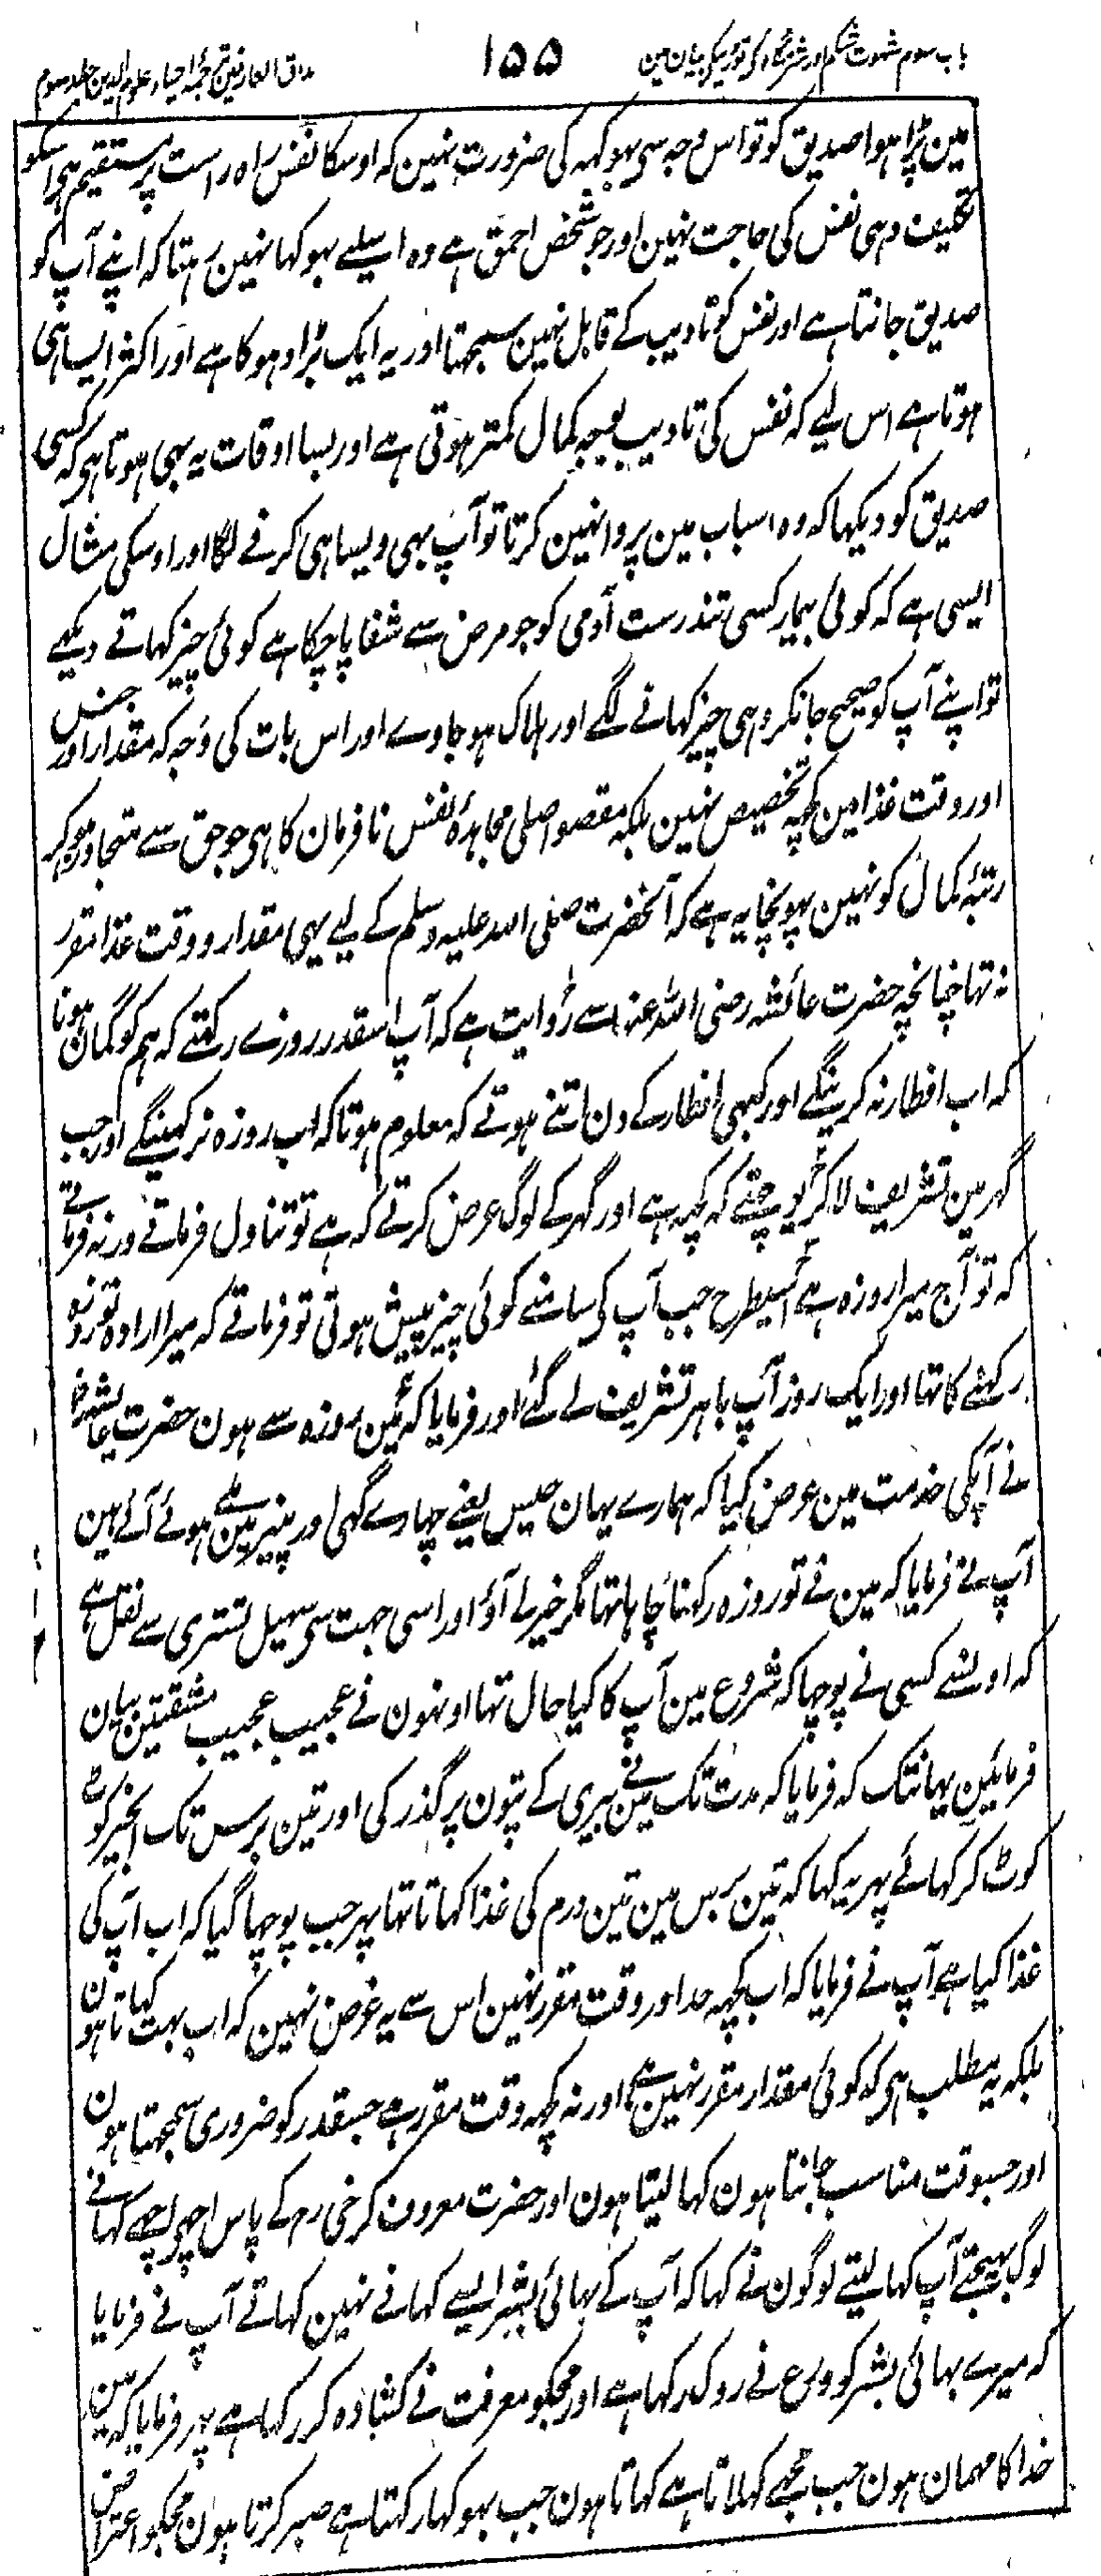 باب سوم شہوت شکم اور شرمگاہ کی توڑنیکی بیان مین
۱۵۵
مذاق العارفین ترجمۂ احیاء علوم الدین جلد سوم
مین پڑا ہوا صدیق کو تو اس وجہ سی بہوکہہ کی ضرورت نہین کہ اوسکا نفس راہ راست پر مستقیم ہی اسکو
تکلیف دہی نفس کی حاجت نہین اور جو شخص احمق ہے وہ اسیلے بہوکہا نہین رہتا کہ اپنے آپ کو
صدیق جانتا ہے اور نفس کو تادیب کے قابل نہین سمجہتا اور یہ ایک بڑا دہوکا ہے اور اکثر ایسا ہی
ہوتا ہے اس لیے کہ نفس کی تادیب بوجہ کمال کمتر ہوتی ہے اور بسا اوقات یہ بہی ہوتا ہی کہ کسی
صدیق کو دیکہا کہ وہ اسباب مین پروا نہین کرتا تو آپ بہی ویسا ہی کرنے لگا اور اوسکی مثال
ایسی ہے کہ کوئی بیمار کسی تندرست آدمی کو جو مرض سے شفا پا چکا ہے کوئی چیز کہاتے دیکہے
تو اپنے آپ کو صحیح جانکر وہی چیز کہانے لگے اور ہلاک ہو جاوے اور اس بات کی وجہ کہ مقدار اور جنس
اور وقت غذا مین کچہہ تخصیص نہین بلکہ مقصود اصلی مجاہدۂ نفس نافرمان کا ہی جو حق سے متجاوز ہو کر
رتبۂ کمال کو نہین پہونچا یہ ہے کہ آنحضرت صلی اللہ علیہ وسلم کے لیے یہی مقدار و وقت غذا مقرر
نہ تہا چنانچہ حضرت عائشہ رضی اللہ عنہا سے روایت ہے کہ آپ اسقدر روزے رکہتے کہ ہم کو گمان ہوتا
کہ اب افطار نہ کرینگے اور کبہی افطار کے دن اتنے ہوتے کہ معلوم ہوتا کہ اب روزہ نرکہینگے اور جب
گہر مین تشریف لا کر پوچہتے کہ کچہہ ہے اور گہر کے لوگ عرض کرتے کہ ہے تو تناول فرماتے ورنہ فرماتے
کہ تو آج میرا روزہ ہے اسیطرح جب آپ کی سامنے کوئی چیز پیش ہوتی تو فرماتے کہ میرا ارادہ تو روزہ
رکہنے کا تہا اور ایک روز آپ باہر تشریف لے گئے اور فرمایا کہ مین روزہ سے ہون حضرت عائشہ رض
نے آپکی خدمت مین عرض کیا کہ ہمارے یہان حیس یعنے چہارے گہی اور پنیر مین ملے ہوئے آئے ہین
آپ نے فرمایا کہ مین نے تو روزہ رکہنا چاہا تہا مگر خیر لے آؤ اور اسی جہت سی سہیل تستری سے نقل ہے
کہ اونسے کسی نے پوچہا کہ شروع مین آپ کا کیا حال تہا اونہون نے عجیب عجیب مشقتین بیان
فرمائین یہانتک کہ فرمایا کہ مدت تک مین نے بیری کے پتون پر گذر کی اور تین برس تک انجیر کوٹے
کوٹ کر کہائے پہر یہ کہا کہ تین برس مین تین درم کی غذا کہاتا تہا پہر جب پوچہا گیا کہ اب آپ کی
غذا کیا ہے آپ نے فرمایا کہ اب کچہہ حد اور وقت مقرر نہین اس سے یہ غرض نہین کہ اب بہت کہاتا ہون
بلکہ یہ مطلب ہی کہ کوئی مقدار مقرر نہین ہے اور نہ کچہہ وقت مقرر ہے جسقدر کو ضروری سمجہتا ہون
اور جسوقت مناسب جانتا ہون کہا لیتا ہون اور حضرت معروف کرخی رح کے پاس اچہے اچہے کہانے
لوگ بہیجتے آپ کہا لیتے لوگون نے کہا کہ آپ کے بہائی بشر ایسے کہانے نہین کہاتے آپ نے فرمایا
کہ میرے بہائی بشر کو ورع نے روک رکہا ہے اور مجکو معرفت نے کشادہ کر رکہا ہے پہر فرمایا کہ مین
خدا کا مہمان ہون جب مجہے کہلاتا ہے کہاتا ہون جب بہوکہا رکہتا ہے صبر کرتا ہون مجکو اعتراض